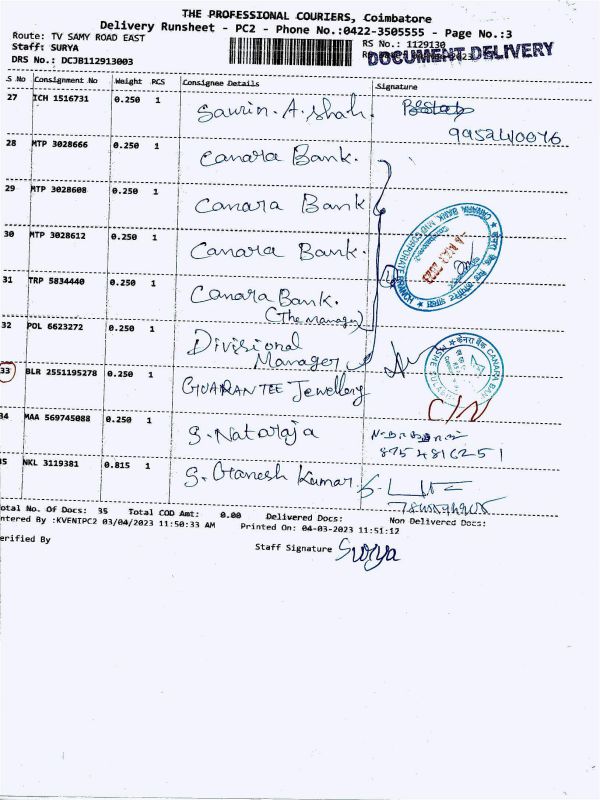 THE PROFESSIONAL COURIERS, Coimbatore
Delivery Runsheet - PC2 - Phone No.:0422-3505555 - Page No.:3
Route: TV SAMY ROAD EAST
RS No.: 1129130
Staff: SURYA
DOCUMENT DELIVERY
DRS No.: DCJB112913003
S No Consignment No Weight PCS Consignee Details Signature
27 ICH 1516731 0.250 1 Saurin. A. shah.
9952410076
28 MTP 3028666 0.250 1 Canara Bank.
29 MTP 3028608 0.250 1 Canara Bank
30 MTP 3028612 0.250 1 Canara Bank.
31 TRP 5834440 0.250 1 Canara Bank.
(The Manager)
32 POL 6623272 0.250 1 Divisional
Manager
33 BLR 2551195278 0.250 1 GUARANTEE Jewellery
C/N
34 MAA 569745088 0.250 1 S. Nataraja
8754816251
35 NKL 3119381 0.815 1 S. Ganesh Kumar
otal No. Of Docs: 35 Total COD Amt: 0.00 Delivered Docs: Non Delivered Docs:
ntered By :KVENIPC2 03/04/2023 11:50:33 AM Printed On: 04-03-2023 11:51:12
erified By Staff Signature Surya